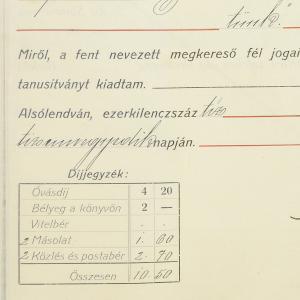 tünk.
Miről, a fent nevezett megkereső fél jogai
tanusítványt kiadtam.
Alsólendván, ezerkilenczszáz tíz
napján.
Díjjegyzék:
Óvásdíj 4 20
Bélyeg a könyvön 2 —
Vitelbér . .
2 Másolat 1. 60
2 Közlés és postabér 2. 70
Összesen 10.50